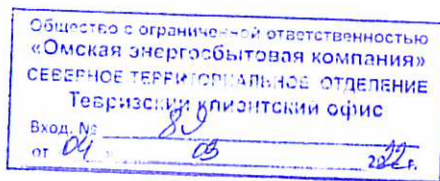 Общество с ограниченной ответственностью
«Омская энергосбытовая компания»
СЕВЕРНОЕ ТЕРРИТОРИАЛЬНОЕ ОТДЕЛЕНИЕ
Тевризский клиентский офис
Вход. № 89
от 04 03 2022 г.